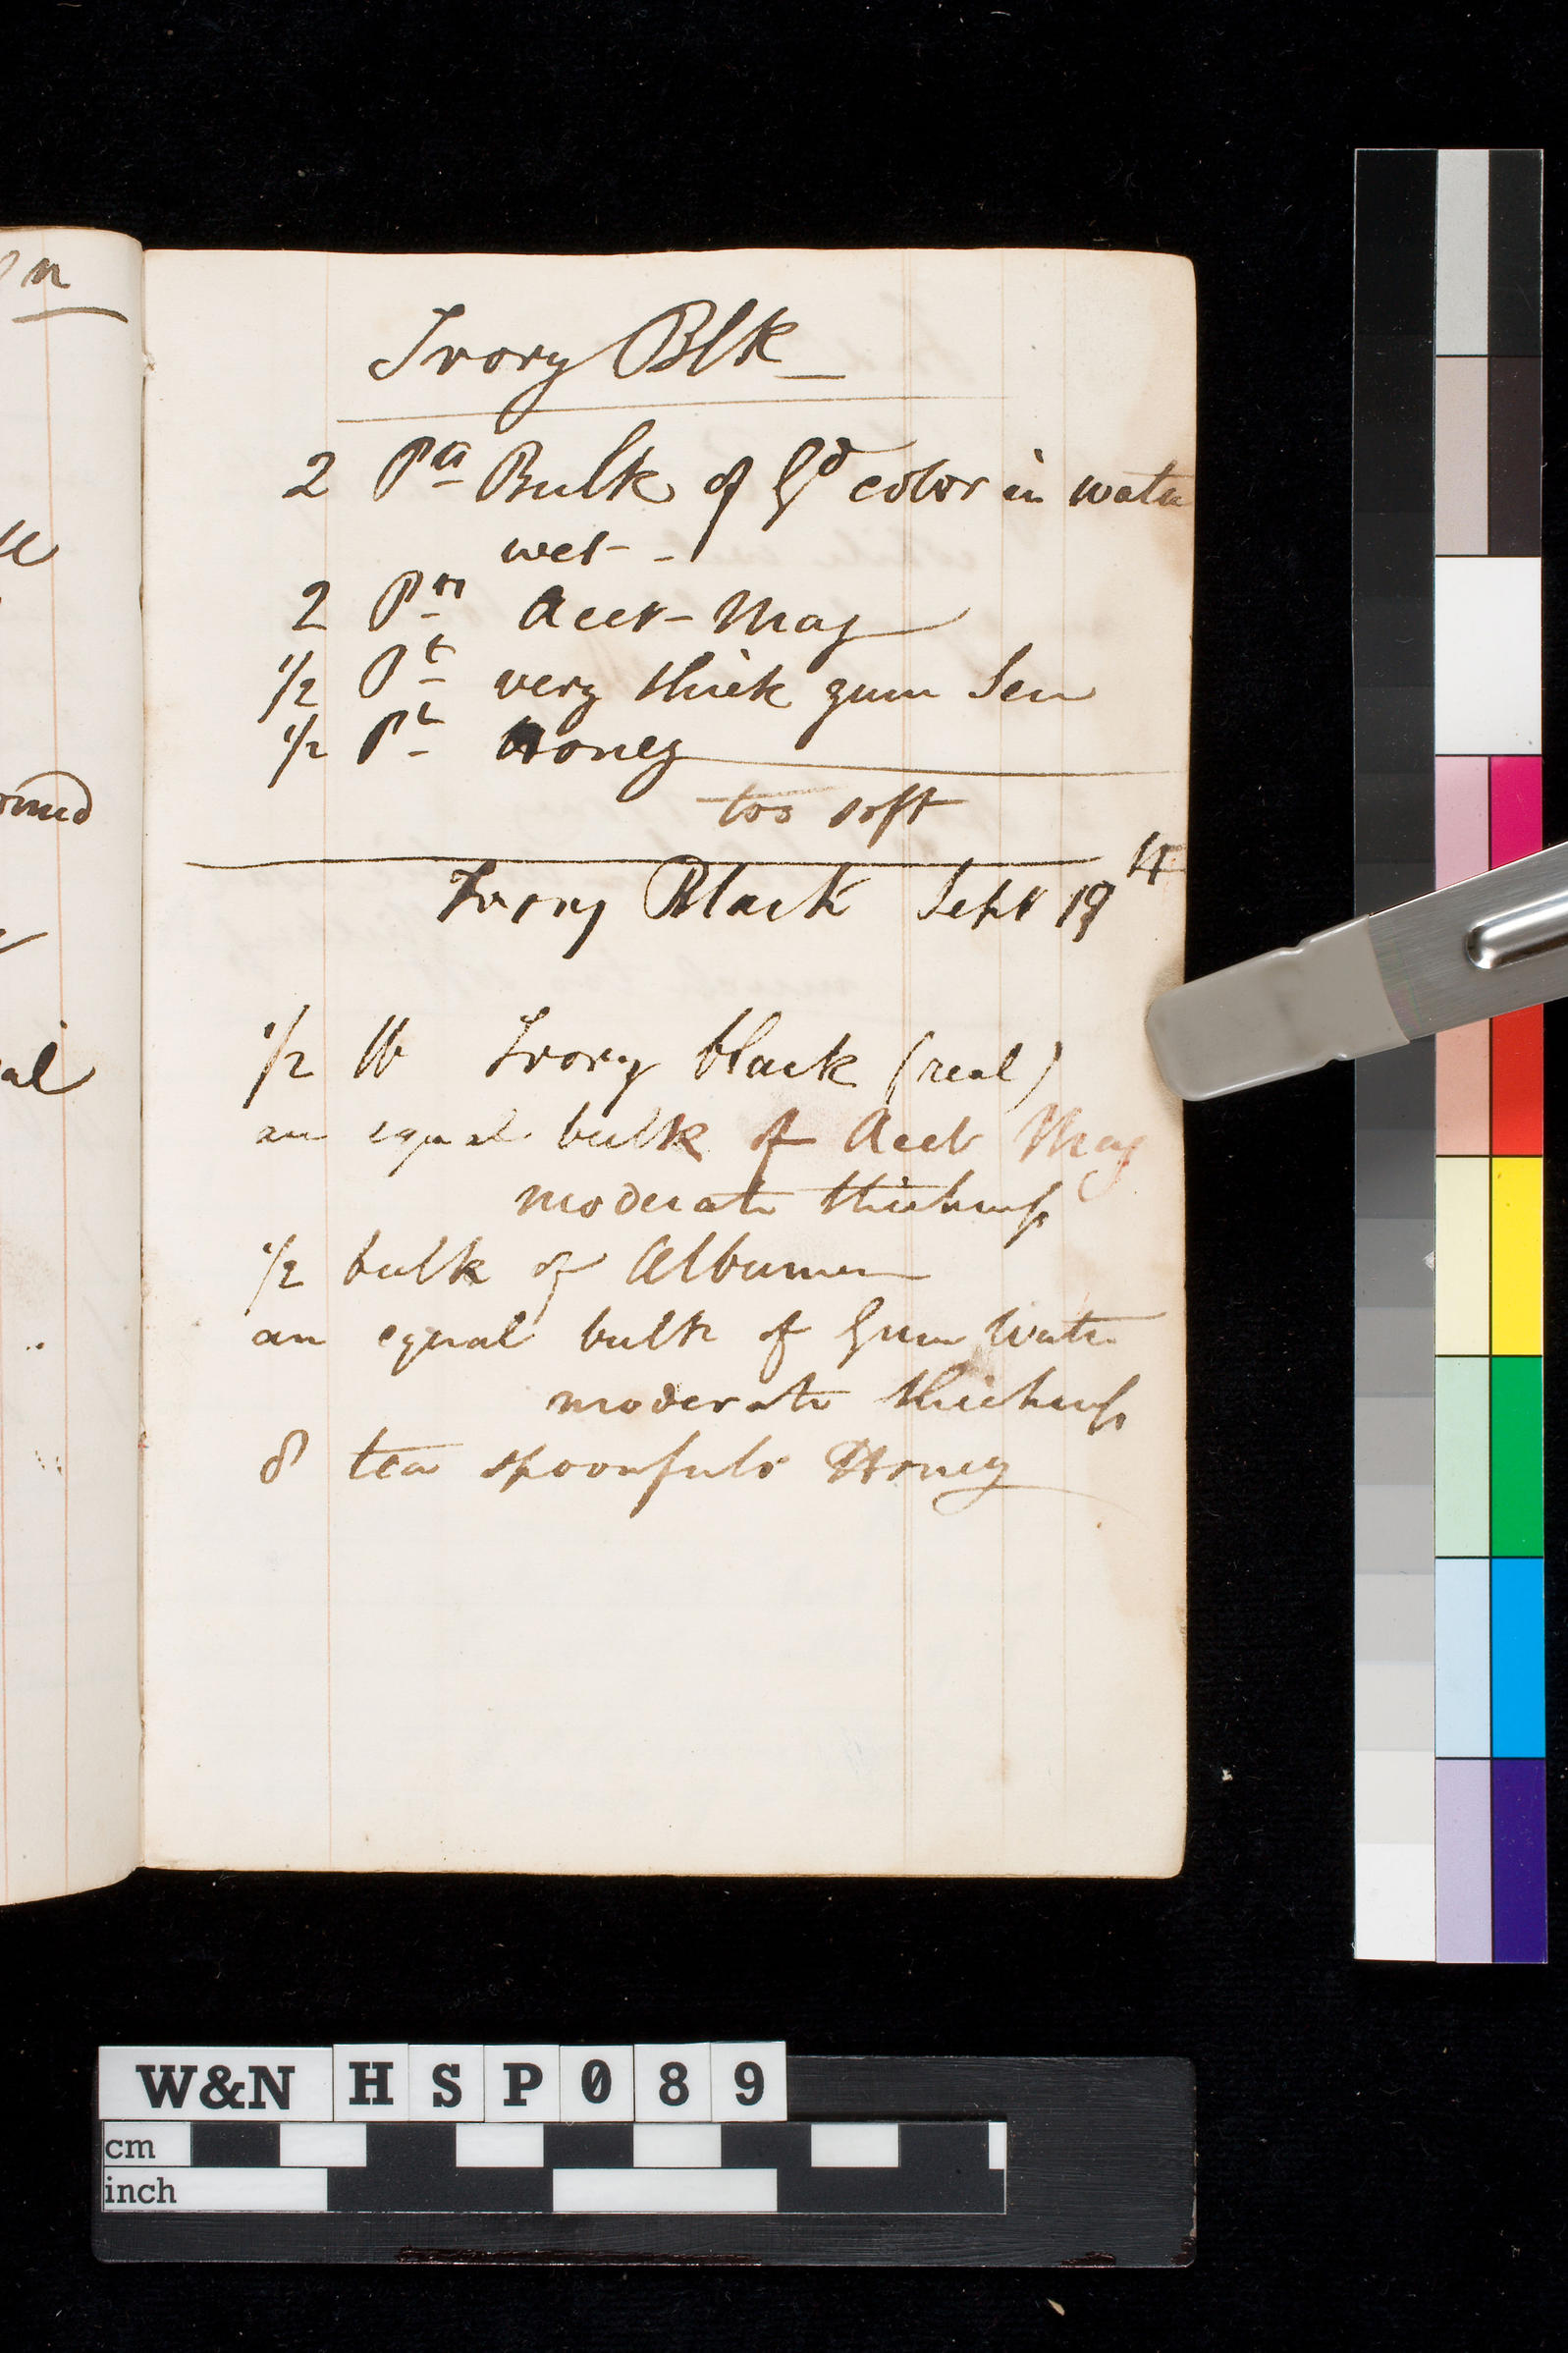 n
Ivory Blk
2 Pts Bulk of Gd color in water
wet -
2 Pts Acet Mag
1/2 Pt very thick gum Sen
1/2 Pt Honey
too soft
Ivory Black Sept 19
1/2 lb Ivory black (real)
an equal bulk of Acet Mag
moderate thickness
1/2 bulk of Albumen
an equal bulk of Gum Water
moderate thickness
8 tea spoonfuls Honey
al
W&N HSP089
cm
inch